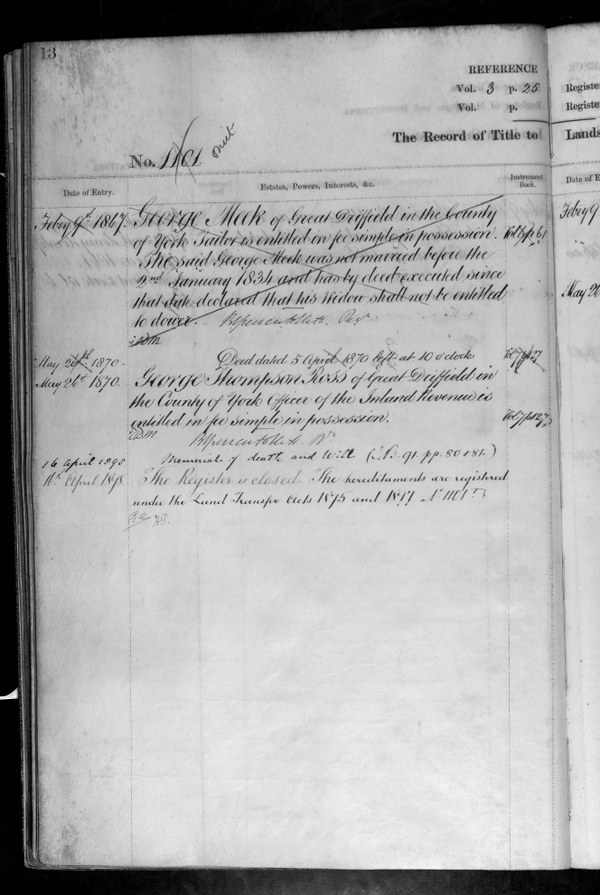 13
REFERENCE
Vol. 3 p. 25
Vol. p.
The Record of Title to
No. 1101
omit
Date of Entry.
Estates, Powers, Interests, &c.
Instrument Book.
Febry 9th 1867.
George Meek of Great Driffield in the County
of York Tailor is entitled in fee simple in possession.
The said George Meek was not married before the
2nd January 1834 and has by deed executed since
that date declared that his Widow shall not be entitled
to dower.
May 26th 1870.
Deed dated 5 April 1870 left at 10 o'clock
May 26th 1870.
George Thompson Ross of Great Driffield in
the County of York Officer of the Inland Revenue is
entitled in fee simple in possession.
16 April 1898
Memorial of death and Will (I.B. 91 pp. 80 & 81.)
April 1898
The Register is closed. The hereditaments are registered
under the Land Transfer Acts 1875 and 1897
Registe
Registe
Lands
Date of E
Febry 9
May 26